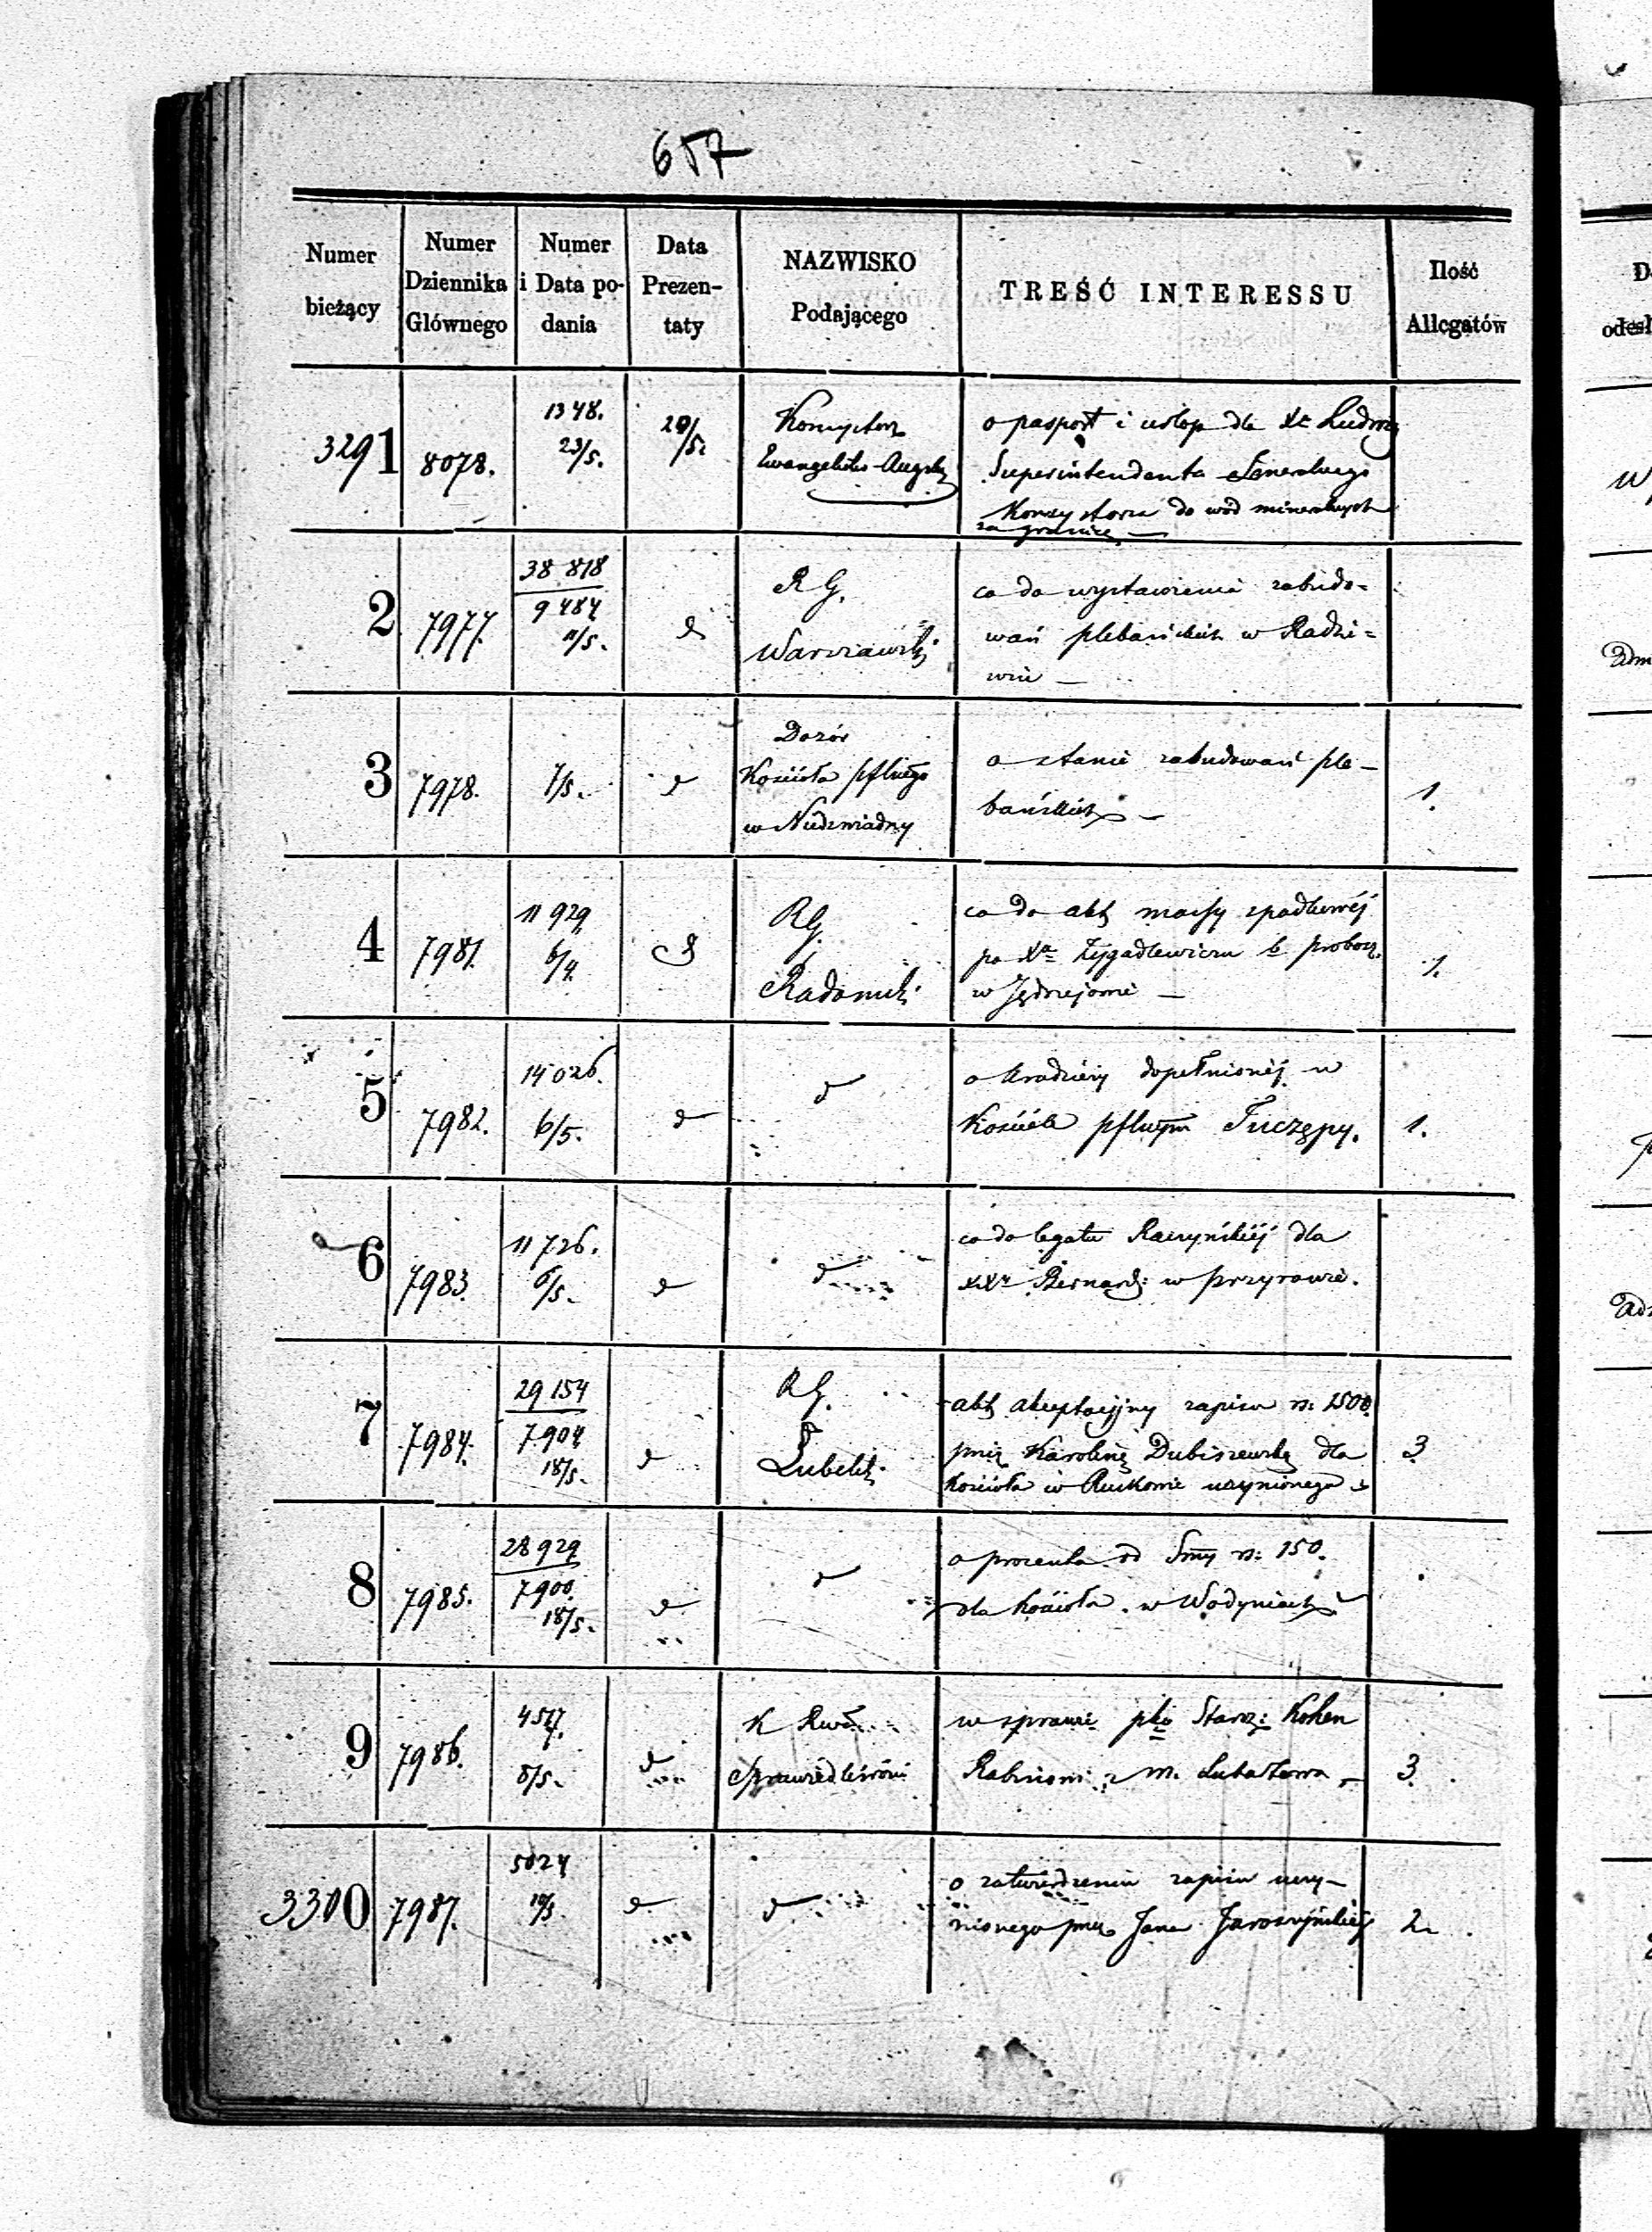 657
Numer bieżący
Numer Dziennika Głównego
Numer i Data podania
Data Prezentaty
NAZWISKO Podającego
TREŚĆ INTERESSU
Ilość Allegatów
3291
8078.
1348.
23/5.
Konsystorz
Ewangelicko-Augsb
o pasport i urlop dla Xa Ludwig
Superintendenta Generalnego
Konsystorza do wód mineralnych
za granicę. —
2
7977.
38 818
9 484
11/5.
d
R G.
Warszawski
co do wystawienia zabudo=
wań plebańskich w Radzi=
wiu —
3
7978.
7/5.
d
Dozór
Kościoła pflnego
w Niedzwiadny
o stanie zabudowań ple—
bańskich —
1.
4
7981.
11 929
6/4.
d
R G.
Radomski
co do akt massy spadkowéj
po Xa Zygadlewiczu b. probosz.
w Jędrzejowie —
1.
5
7982.
14 026.
6/5.
d
d
o kradzieży dopełnionéj w
Kościele pflnym Tuczępy.
1.
6
7983.
11 726.
6/5.
d
d
co do legatu Raczyńskiéj dla
XXy Bernard: w Przyrowie.
7
7984.
29 154
7 904
18/5.
d
R G.
Lubelski
akt akceptacyjny zapisu rs: 1500.
przez Karolinę Dubiszewską dla
Kościoła w uczynionego
3
8
7985.
28 929
7 900.
18/5.
d
d
o procenta od Smy rs: 150.
dla Kościoła w Wodyniach
9
7986.
4517.
8/5.
d
K Rwa
Sprawiedliwości
w sprawie pko Staroz: Kohen
Rabinowi z m. Lubartowa —
3
3300
7987.
5024
d
d
o zatwierdzeniu zapisu uczy—
nionego przez Jana Jaroszyńskiéj
2